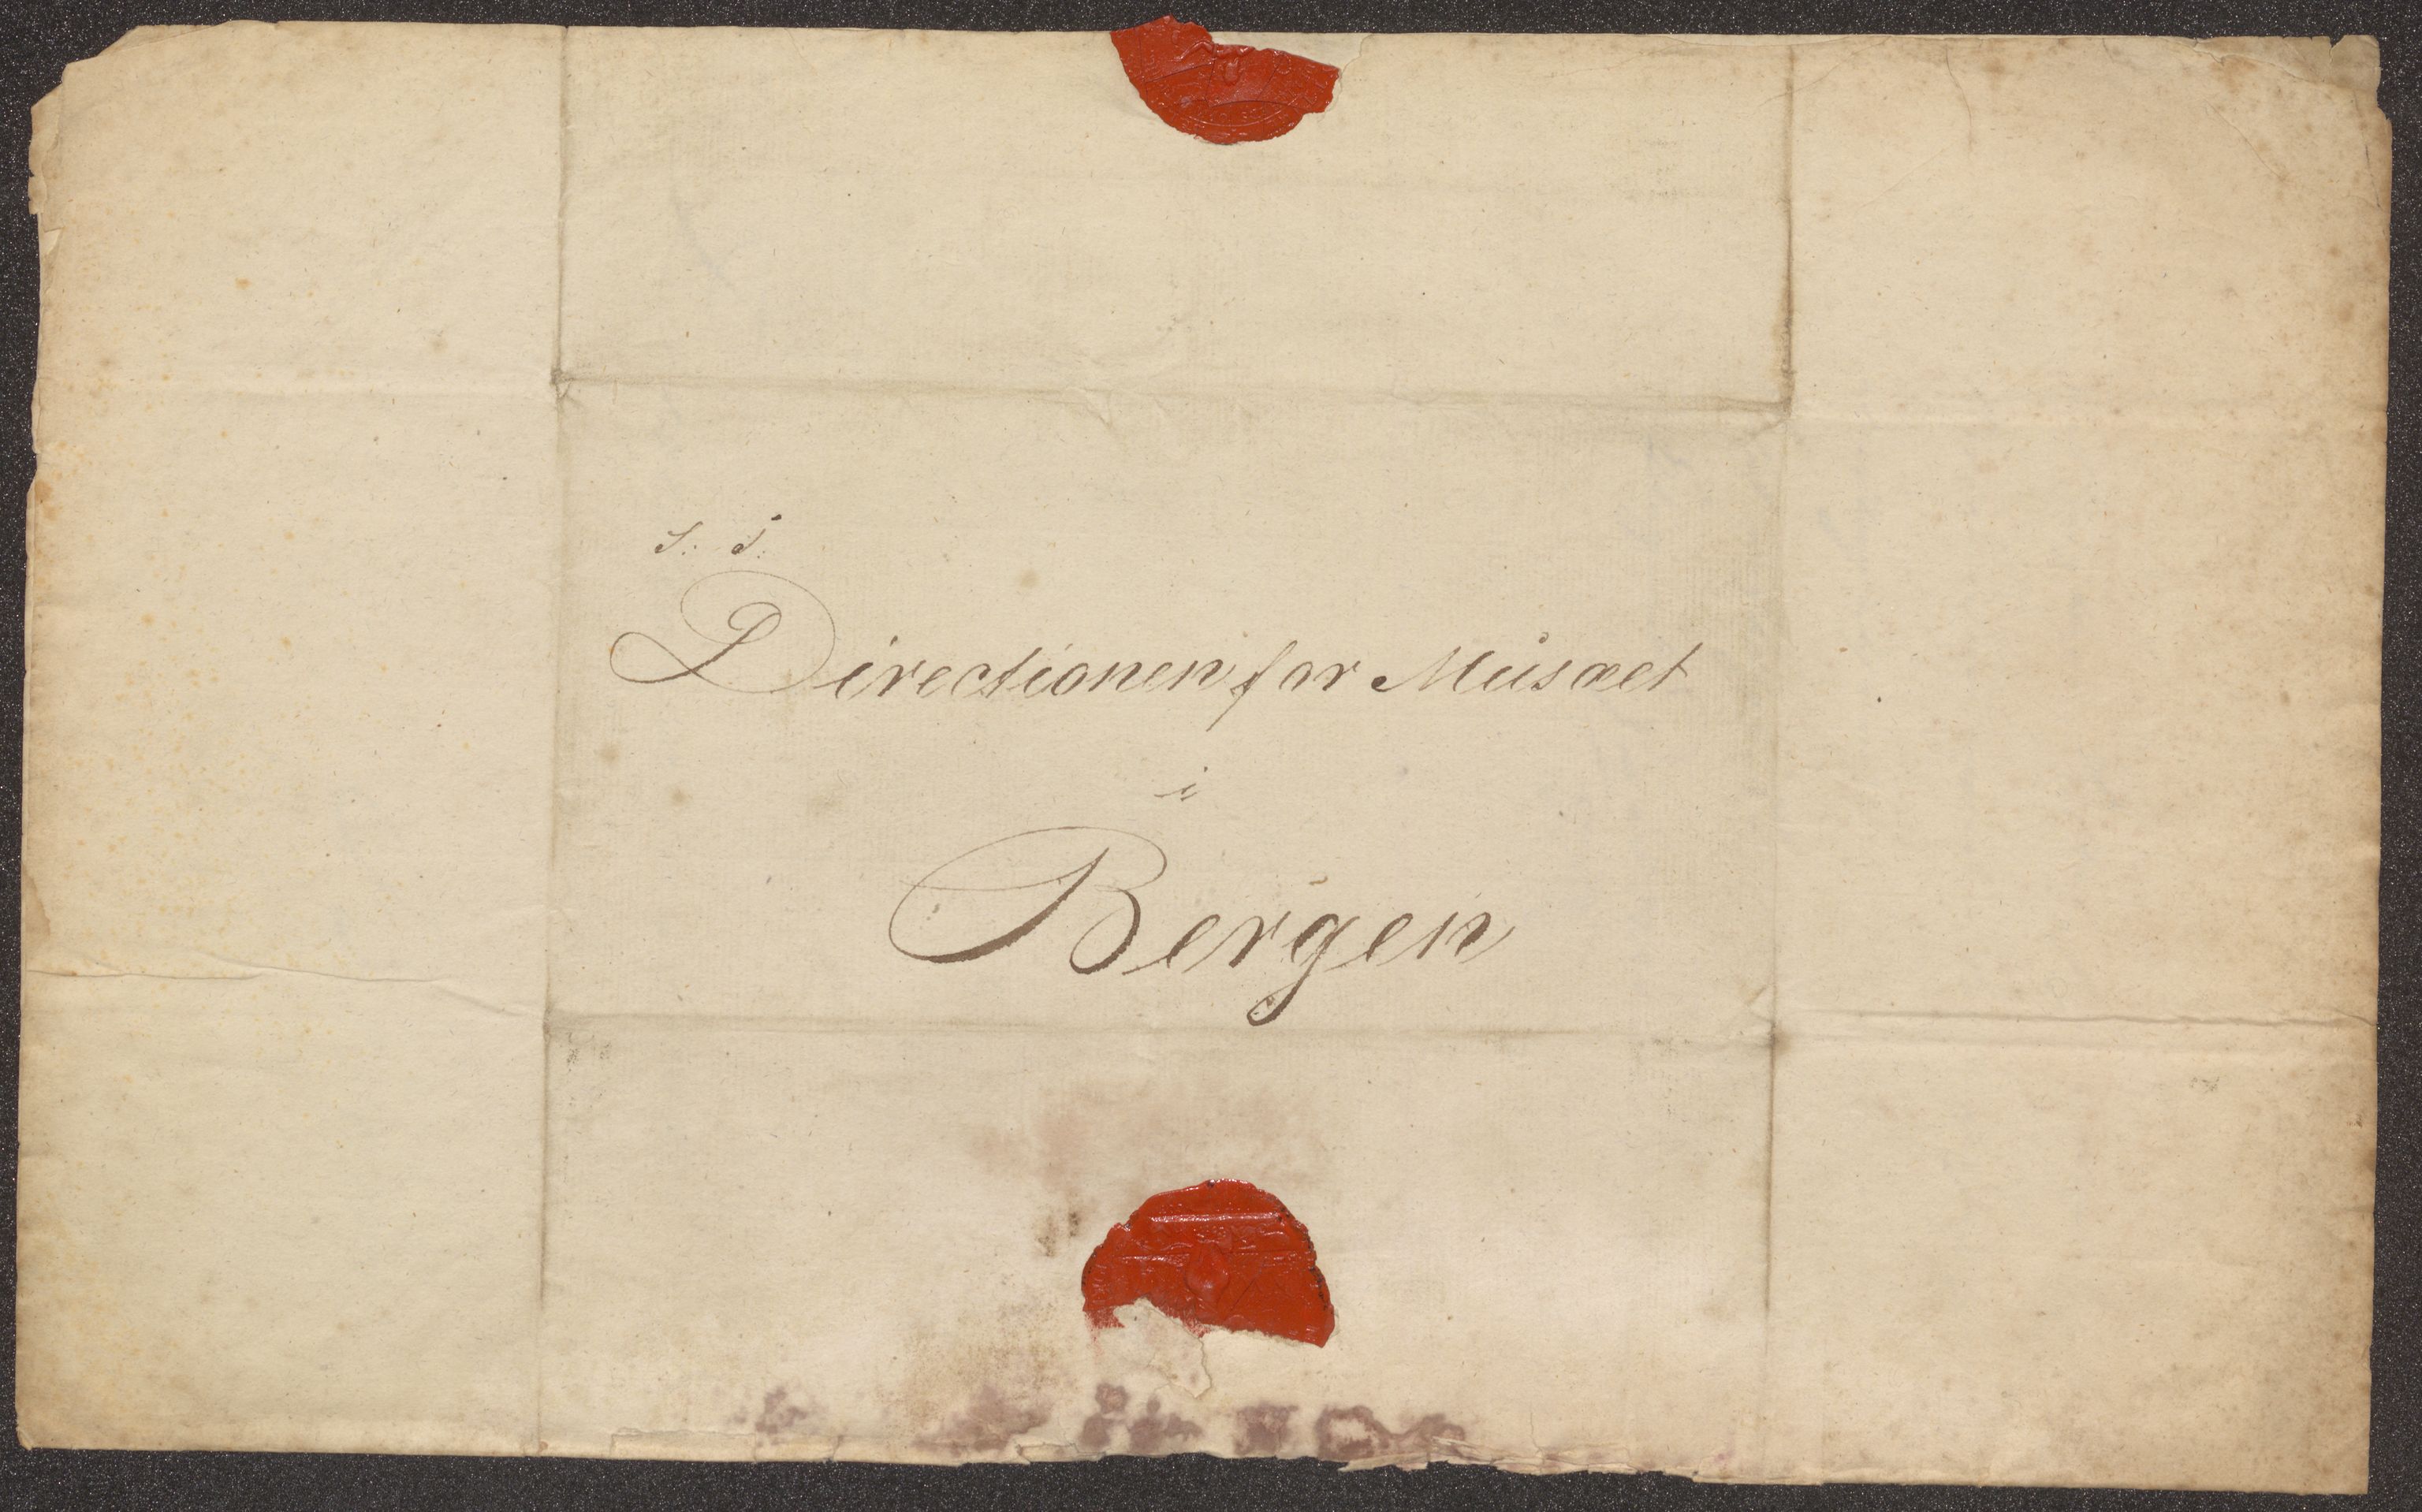 S. S.
Directionen for Musæet
i
Bergen